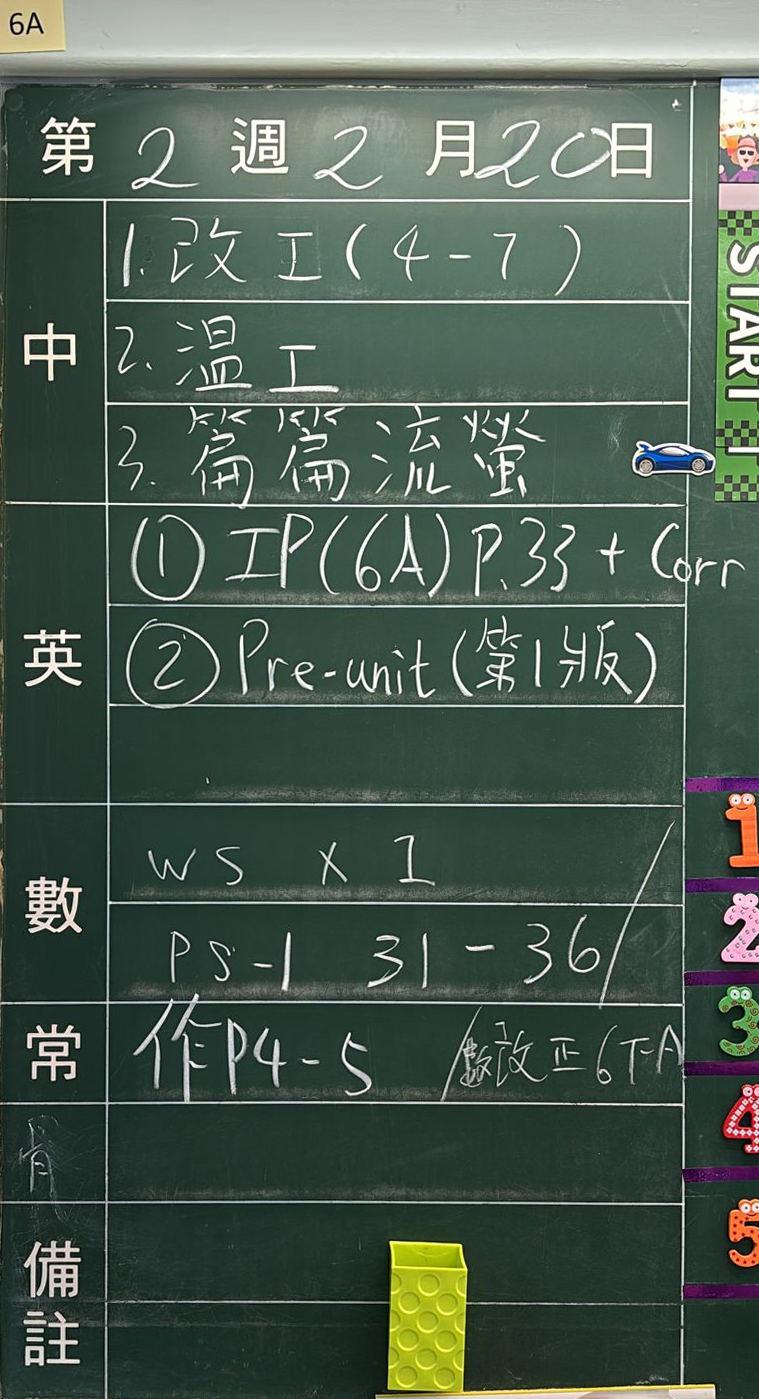 6A
第 2 週 2 月 20 日
中
1. 改工(4-7)
2. 温工
3. 篇篇流螢
英
① IP(6A) P.33 + Corr
② Pre-unit (第1版)
數
WS x 1
PS-1 31-36
常
作P4-5 / 數改正6下A
備註
START
1
2
3
4
5